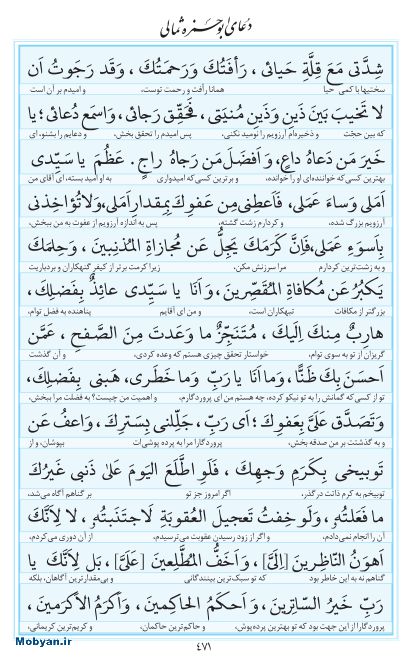 دعای ابوحمزه ثمالی
شِدَّتی مَعَ قِلَّةِ حَیائی ، رَأفَتُكَ وَرَحمَتُكَ ، وَقَد رَجَوتُ اَن
سختیها با کمی حیا همانا رأفت و رحمت توست، و امیدم بر آن است
لا تَخیبَ بَینَ ذَینِ وَذَینِ مُنیَتی ، فَحَقِّق رَجائی، وَاسمَع دُعائی؛ یا
که بین حجّت و ذخیره‌ام آرزویم را نومید نکنی، پس امیدم را تحقق بخش، و دعایم را بشنو، ای
خَیرَ مَن دَعاهُ داعٍ، وَ اَفضَلَ مَن رَجاهُ راجٍ. عَظُمَ یا سَیِّدی
بهترین کسی که خواننده‌ای او را خوانده، و برترین کسی که امیدواری به او امید بسته، ای آقای من
اَمَلی وَساءَ عَمَلی، فَاَعطِنی مِن عَفوِكَ بِمِقدارِ اَمَلی، وَلا تُؤاخِذنی
آرزویم بزرگ شده، و کردارم زشت گشته، پس به اندازه آرزویم از عفوت به من ببخش،
بِاَسوَءِ عَمَلی، فَاِنَّ كَرَمَكَ یَجِلُّ عَن مُجازاةِ المُذنِبینَ ، وَحِلمَكَ
و به زشت‌ترین کردارم مرا سرزنش مکن، زیرا کرمت برتر از کیفر گنهکاران و بردباریت
یَكبُرُ عَن مُكافاةِ المُقَصِّرینَ، وَاَنَا یا سَیِّدی عائِذٌ بِفَضلِكَ،
بزرگتر از مکافات تبهکاران است، و من ای آقایم پناهنده به فضل توام،
هارِبٌ مِنكَ اِلَیكَ ، مُتَنَجِّزٌ ما وَعَدتَ مِنَ الصَّفحِ ، عَمَّن
گریزان از تو به سوی توام، خواستار تحقق چیزی هستم که وعده کردی، و آن گذشت
اَحسَنَ بِكَ ظَنًّا ، وَما اَنَا یا رَبِّ وَما خَطَری، هَبنی بِفَضلِكَ،
تو از کسی که گمانش را به تو نیکو کرده، چه هستم من ای پروردگارم، و اهمیت من چیست؟ به فضلت مرا ببخش،
وَتَصَدَّق عَلَیَّ بِعَفوِكَ؛ اَی رَبِّ ، جَلِّلنی بِسَترِكَ، وَاعفُ عَن
و به گذشتت بر من صدقه بخش، پروردگارا مرا به پرده پوشی‌ات بپوشان، و از
تَوبیخی بِكَرَمِ وَجهِكَ ، فَلَوِ اطَّلَعَ الیَومَ عَلیٰ ذَنبی غَیرُكَ
توبیخم به کرم ذاتت درگذر، اگر امروز جز تو بر گناهم آگاه می‌شد،
ما فَعَلتُهُ ، وَلَو خِفتُ تَعجیلَ العُقوبَةِ لَاجتَنَبتُهُ ، لا لِاَنَّكَ
آن را انجام نمی‌دادم، و اگر از زود رسیدن عقوبت می‌ترسیدم، از آن دوری می‌کردم،
اَهوَنُ النّاظِرینَ [اِلَیَّ] ، وَاَخَفُّ المُطَّلِعینَ [عَلَیَّ] ، بَل لِاَنَّكَ یا
گناهم نه به این خاطر بود که تو سبک‌ترین بینندگانی و بی‌مقدارترین آگاهان، بلکه
رَبِّ خَیرُ السّاتِرینَ، وَاَحكَمُ الحاكِمینَ ، وَاَكرَمُ الاَكرَمینَ،
پروردگارا از این جهت بود که تو بهترین پرده‌پوش، و حاکم‌ترین حاکمان، و کریم‌ترین کریمانی،
۴۷۱
Mobyan.ir